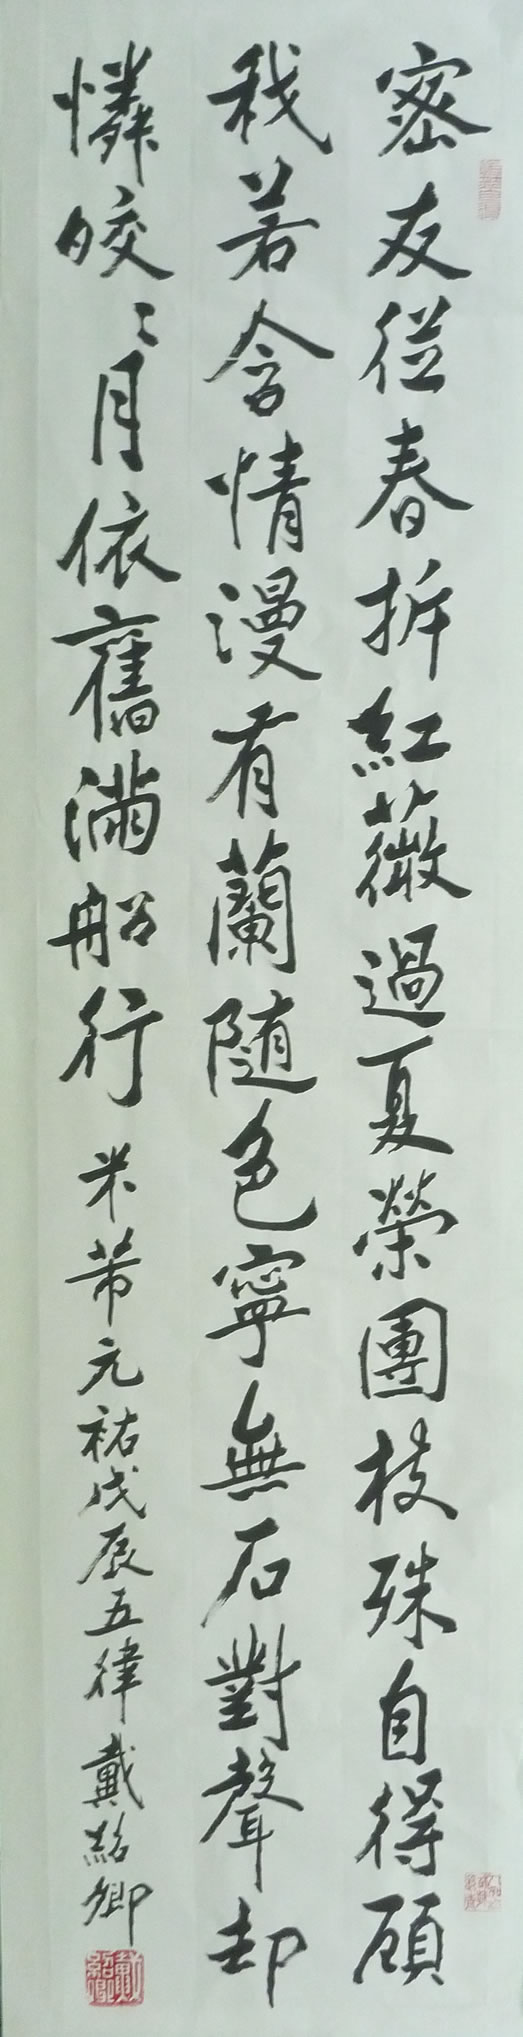 密友從春拆紅薇過夏榮團枝殊自得顧
我若含情漫有蘭随色寧無石對聲却
憐皎〻月依舊滿船行 米芾元祐戊辰五律 戴紹卿